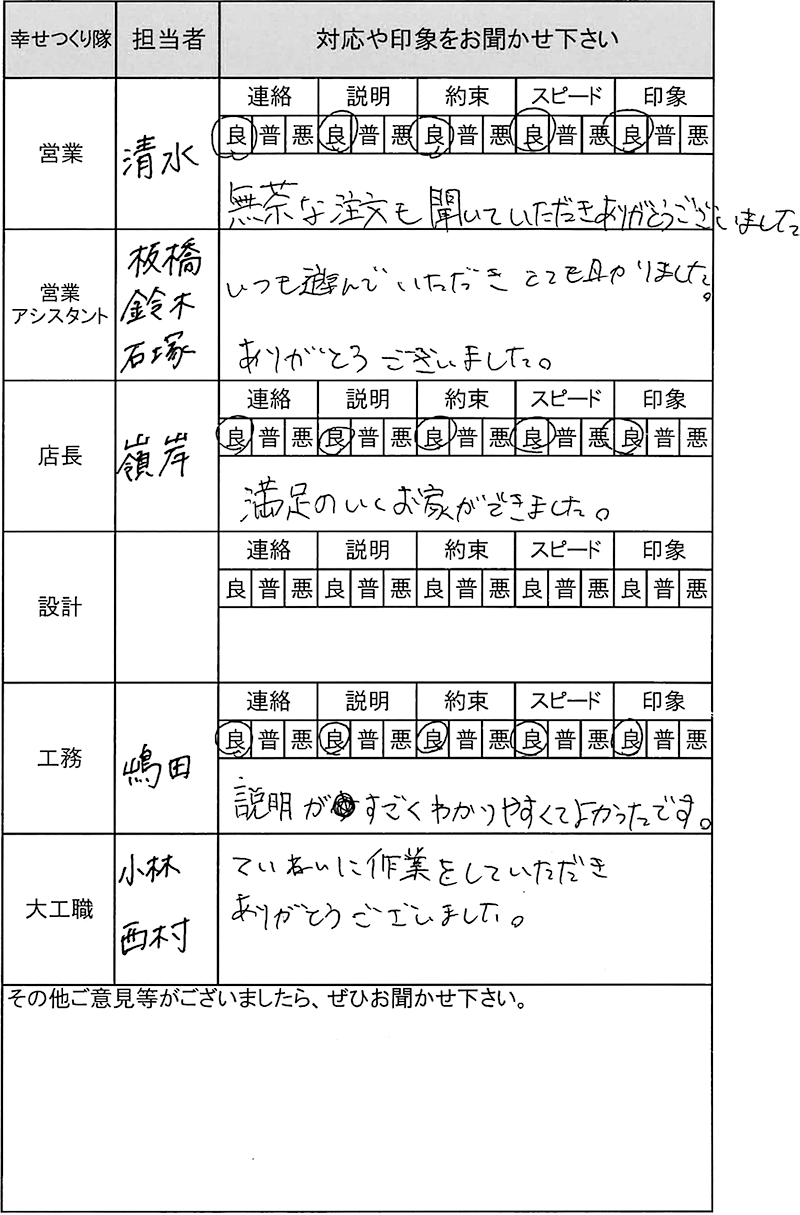 幸せつくり隊 担当者 対応や印象をお聞かせ下さい
連絡 説明 約束 スピード 印象
良 普 悪 良 普 悪 良 普 悪 良 普 悪 良 普 悪
営業 清水
無茶な注文も聞いていただきありがとうございました
営業
アシスタント
板橋
鈴木
石塚
いつも遊んでいただき とても助かりました。
ありがとうございました。
連絡 説明 約束 スピード 印象
良 普 悪 良 普 悪 良 普 悪 良 普 悪 良 普 悪
店長 嶺岸
満足のいくお家ができました。
連絡 説明 約束 スピード 印象
良 普 悪 良 普 悪 良 普 悪 良 普 悪 良 普 悪
設計
連絡 説明 約束 スピード 印象
良 普 悪 良 普 悪 良 普 悪 良 普 悪 良 普 悪
工務 嶋田
説明がすごくわかりやすくてよかったです。
大工職
小林
西村
ていねいに作業をしていただき
ありがとうございました。
その他ご意見等がございましたら、ぜひお聞かせ下さい。